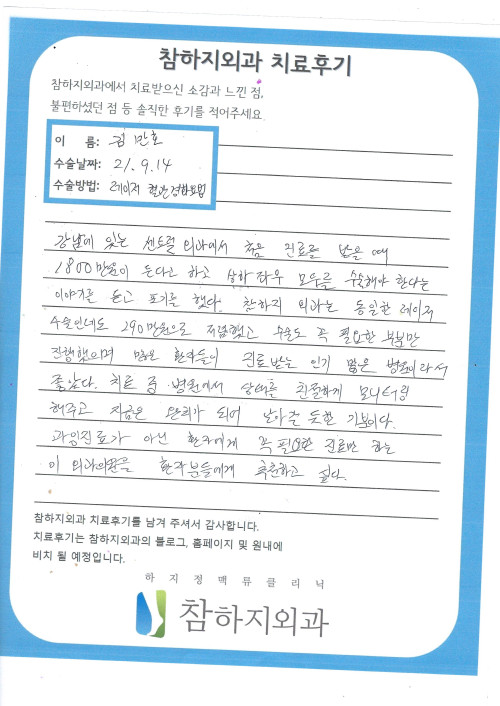 참하지외과 치료후기
참하지외과에서 치료받으신 소감과 느낀 점,
불편하셨던 점 등 솔직한 후기를 적어주세요
이 름: 김 만호
수술날짜: 21. 9. 14
수술방법: 레이저 혈관경화요법
강남에 있는 센트럴 외과에서 처음 진료를 받을 때
1800만원이 든다고 하고 상하좌우 모두를 수술해야 한다는
이야기를 듣고 포기를 했다. 참하지 외과는 동일한 레이저
수술인데도 290만원으로 저렴했고 수술도 꼭 필요한 부분만
진행했으며 많은 환자들이 진료받는 인기 많은 병원이라서
좋았다. 치료 중 병원에서 상태를 친절하게 모니터링
해주고 지금은 완쾌가 되어 날아갈 듯한 기분이다.
과잉진료가 아닌 환자에게 꼭 필요한 진료만 하는
이 외과의원을 환자분들에게 추천하고 싶다.
참하지외과 치료후기를 남겨 주셔서 감사합니다.
치료후기는 참하지외과의 블로그, 홈페이지 및 원내에
비치 될 예정입니다.
하지정맥류클리닉
참하지외과